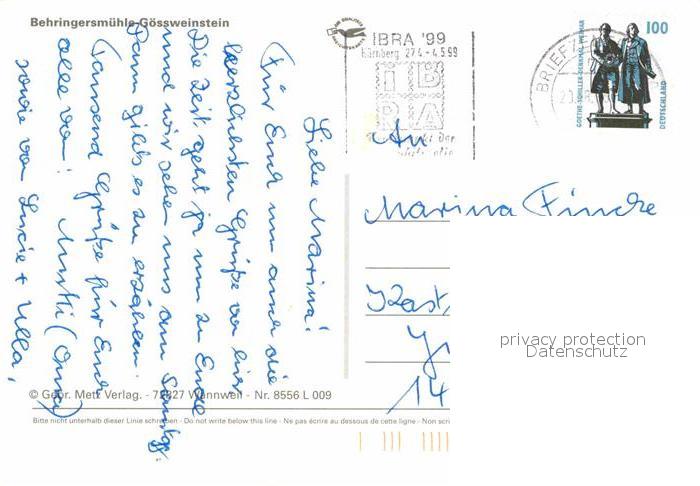 Behringersmühle-Gössweinstein
IBRA '99
Nürnberg 27.4.-4.5.99
IB
RA
BRIEFZE
100
GOETHE-SCHILLER-DENKMAL WEIMAR
DEUTSCHLAND
Liebe Marina!
Für Euch nun auch die
herzlichsten Grüße von hier
Die Zeit geht ja nun zu Ende
und wir sehen uns am Sonntag.
Dann gibts es zu erzählen.
Tausend Grüße für Euch
alle von! Mutti (Oma)
sowie von Lucie + Ulla,
An
Marina Fincke
Kast
14
privacy protection
Datenschutz
© Gebr. Metz Verlag. - 72827 Wannweil - Nr. 8556 L 009
Bitte nicht unterhalb dieser Linie schreiben - Do not write below this line - Ne pas écrire au dessous de cette ligne - Non scri